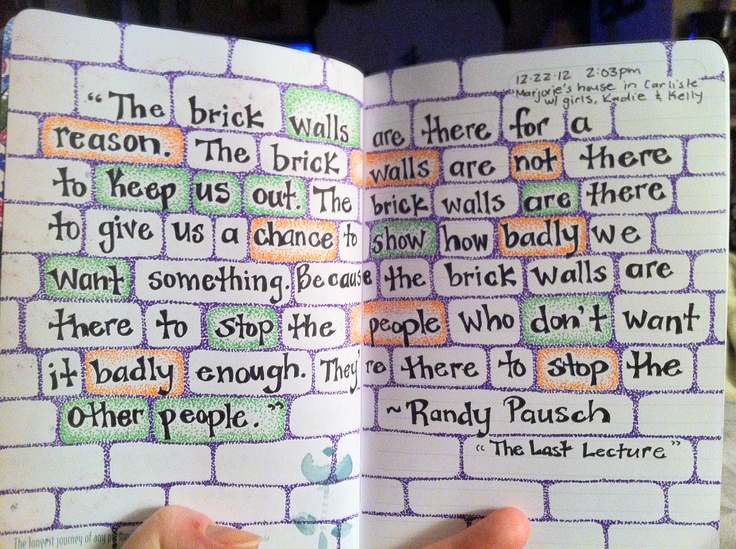 12·22·12 2:03pm
Marjorie's house in Carlisle
w/ girls, Kadie & Kelly
"The brick walls are there for a
reason. The brick walls are not there
to keep us out. The brick walls are there
to give us a chance to show how badly we
want something. Because the brick walls are
there to stop the people who don't want
it badly enough. They're there to stop the
other people."
~Randy Pausch
"The Last Lecture"
The longest journey of any p